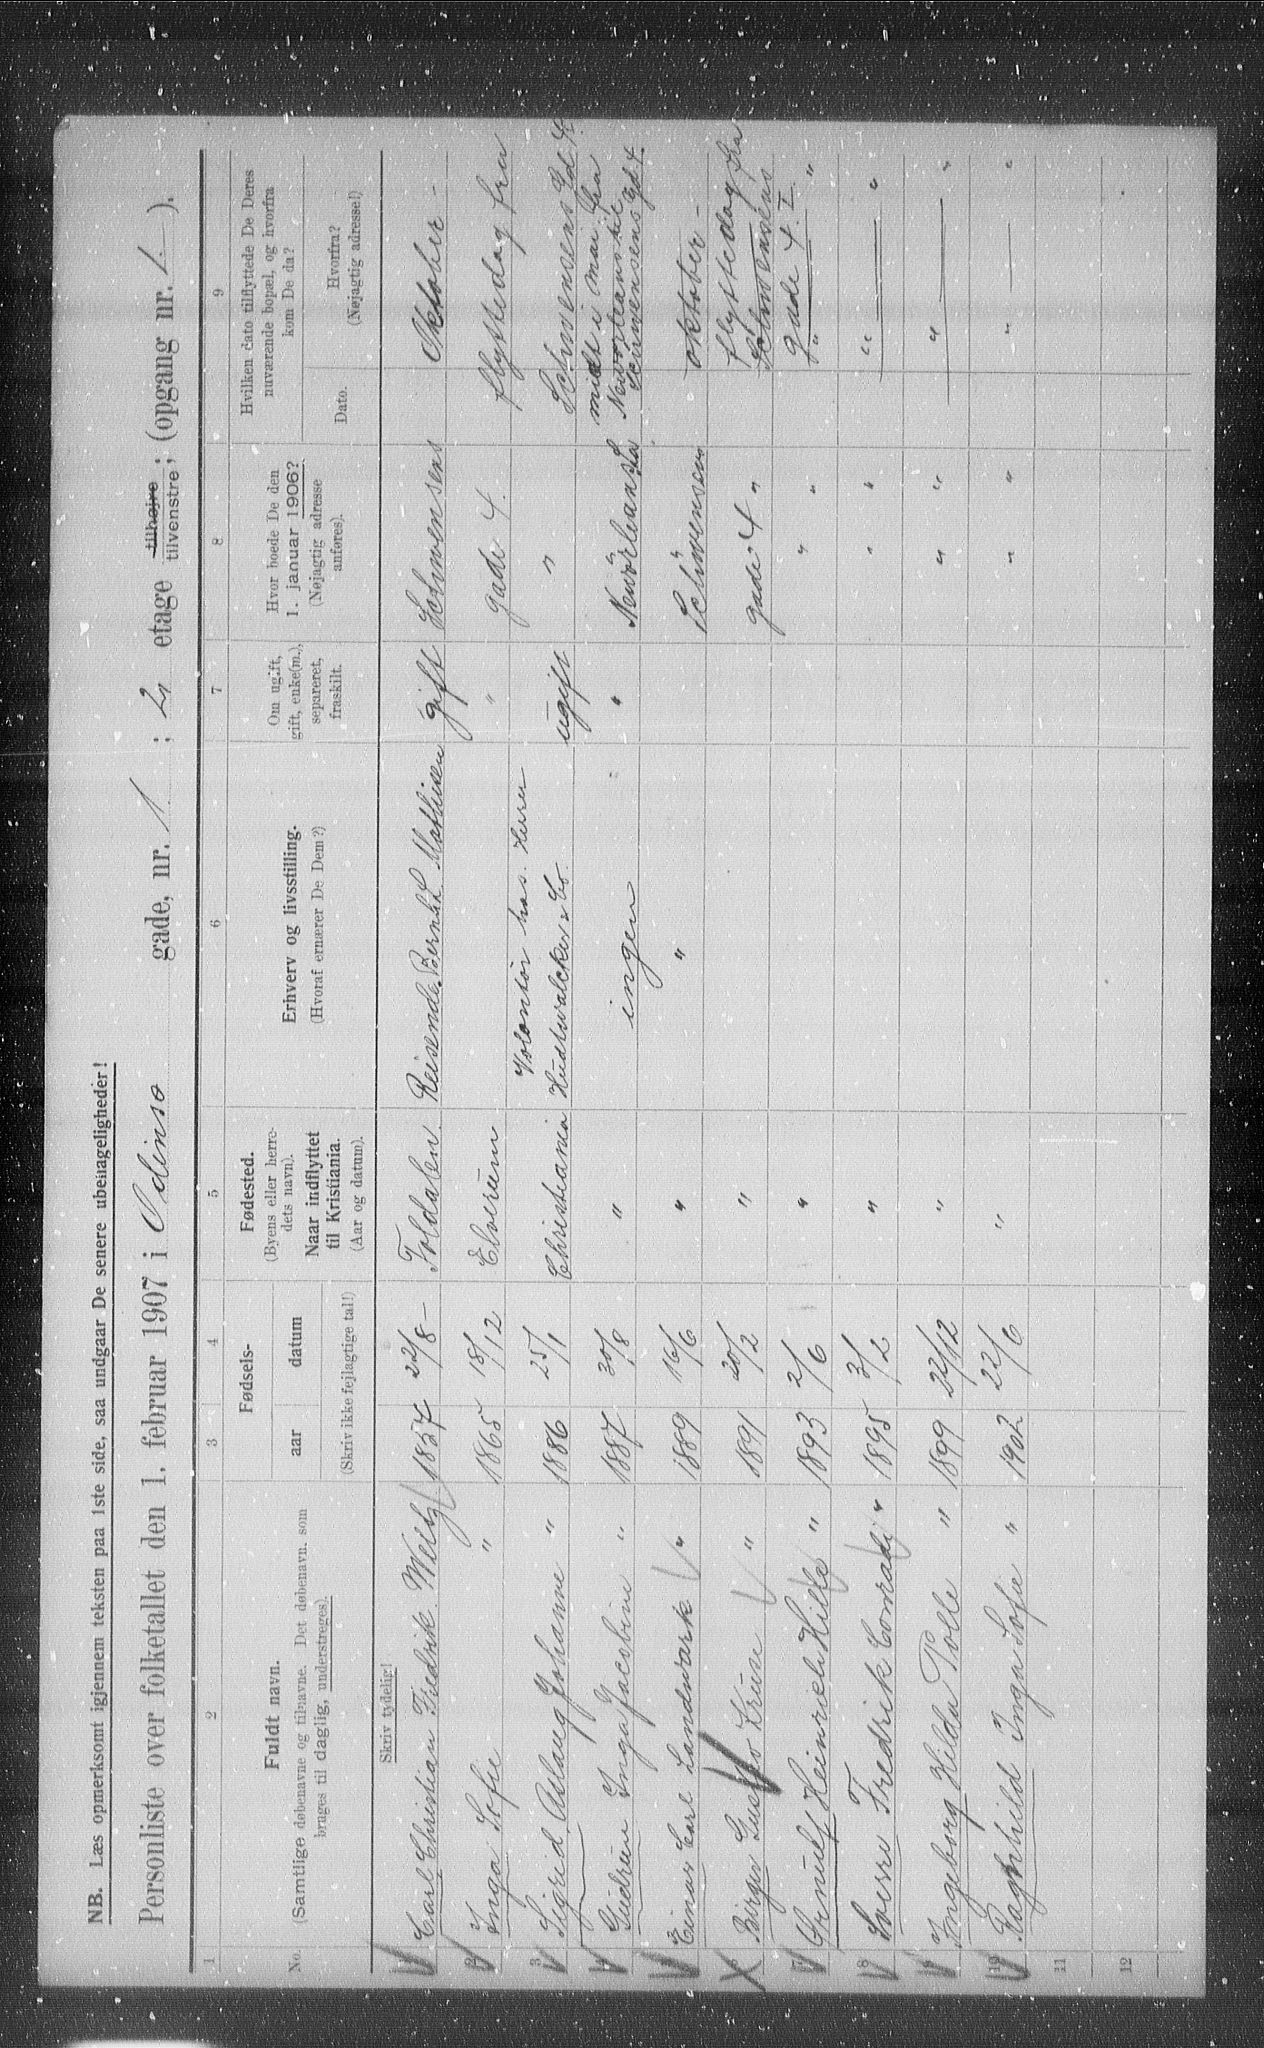 NB. Læs opmerksomt igjennem teksten paa 1ste side, saa undgaar De senere ubehageligheder!
Personliste over folketallet den 1. februar 1907 i Odinso gade, nr. 1 ; 2 etage tilhøjre tilvenstre; (opgang nr. 1. ).
1 2 3 4 5 6 7 8 9
No.
Fuldt navn.
(Samtlige døbenavne og tilnavne. Det døbenavn. som
bruges til daglig, understreges).
Fødsels-
aar datum
(Skriv ikke fejlagtige tal!)
Fødested.
(Byens eller herre-
dets navn).
Naar indflyttet
til Kristiania.
(Aar og datum).
Erhverv og livsstilling.
(Hvoraf ernærer De Dem?)
Om ugift,
gift, enke(m.),
separeret,
fraskilt.
Hvor boede De den
1. januar 1906?
(Nøjagtig adresse
anføres).
Hvilken dato tilflyttede De Deres
nuværende bopæl, og hvorfra
kom De da?
Dato.
Hvorfra?
(Nøjagtig adresse!)
Skriv tydelig!
Carl Christian Fredrik 1857 22/8 - Foldalen. Reisende. Bernhd. Mathisen gift Schwensens Oktober -
2 Inga Sofie " 1865 18/12 Elverum " gade 4. flyttedag fra
3 Sigrid Aslaug Johanne " 1886 25/1 Christiania Volontør hos. Hudtwalcker & Co ugift " Schwensens Gd 4.
4 Gudrun Inga Jacobine " 1887 30/8 " ingen " Neworleans midt i mai fra Neworleans til Schwensens Gd 4.
Einar Carl Landmark " 1889 16/6 " " Schwensens oktober -
Birger Kruse " 1891 20/2 " gade 4 " flyttedag fra Schwensens gade 4. I.
7 Arnulf Heinrich " 1893 2/6 " " " " "
8 Sverre Fredrik Conradi " 1895 3/2 " " " " "
Ingeborg Hilda Polle " 1899 22/12 " " " " "
10 Ragnhild Inga Sofie " 1902 22/6 " " " " "
11
12